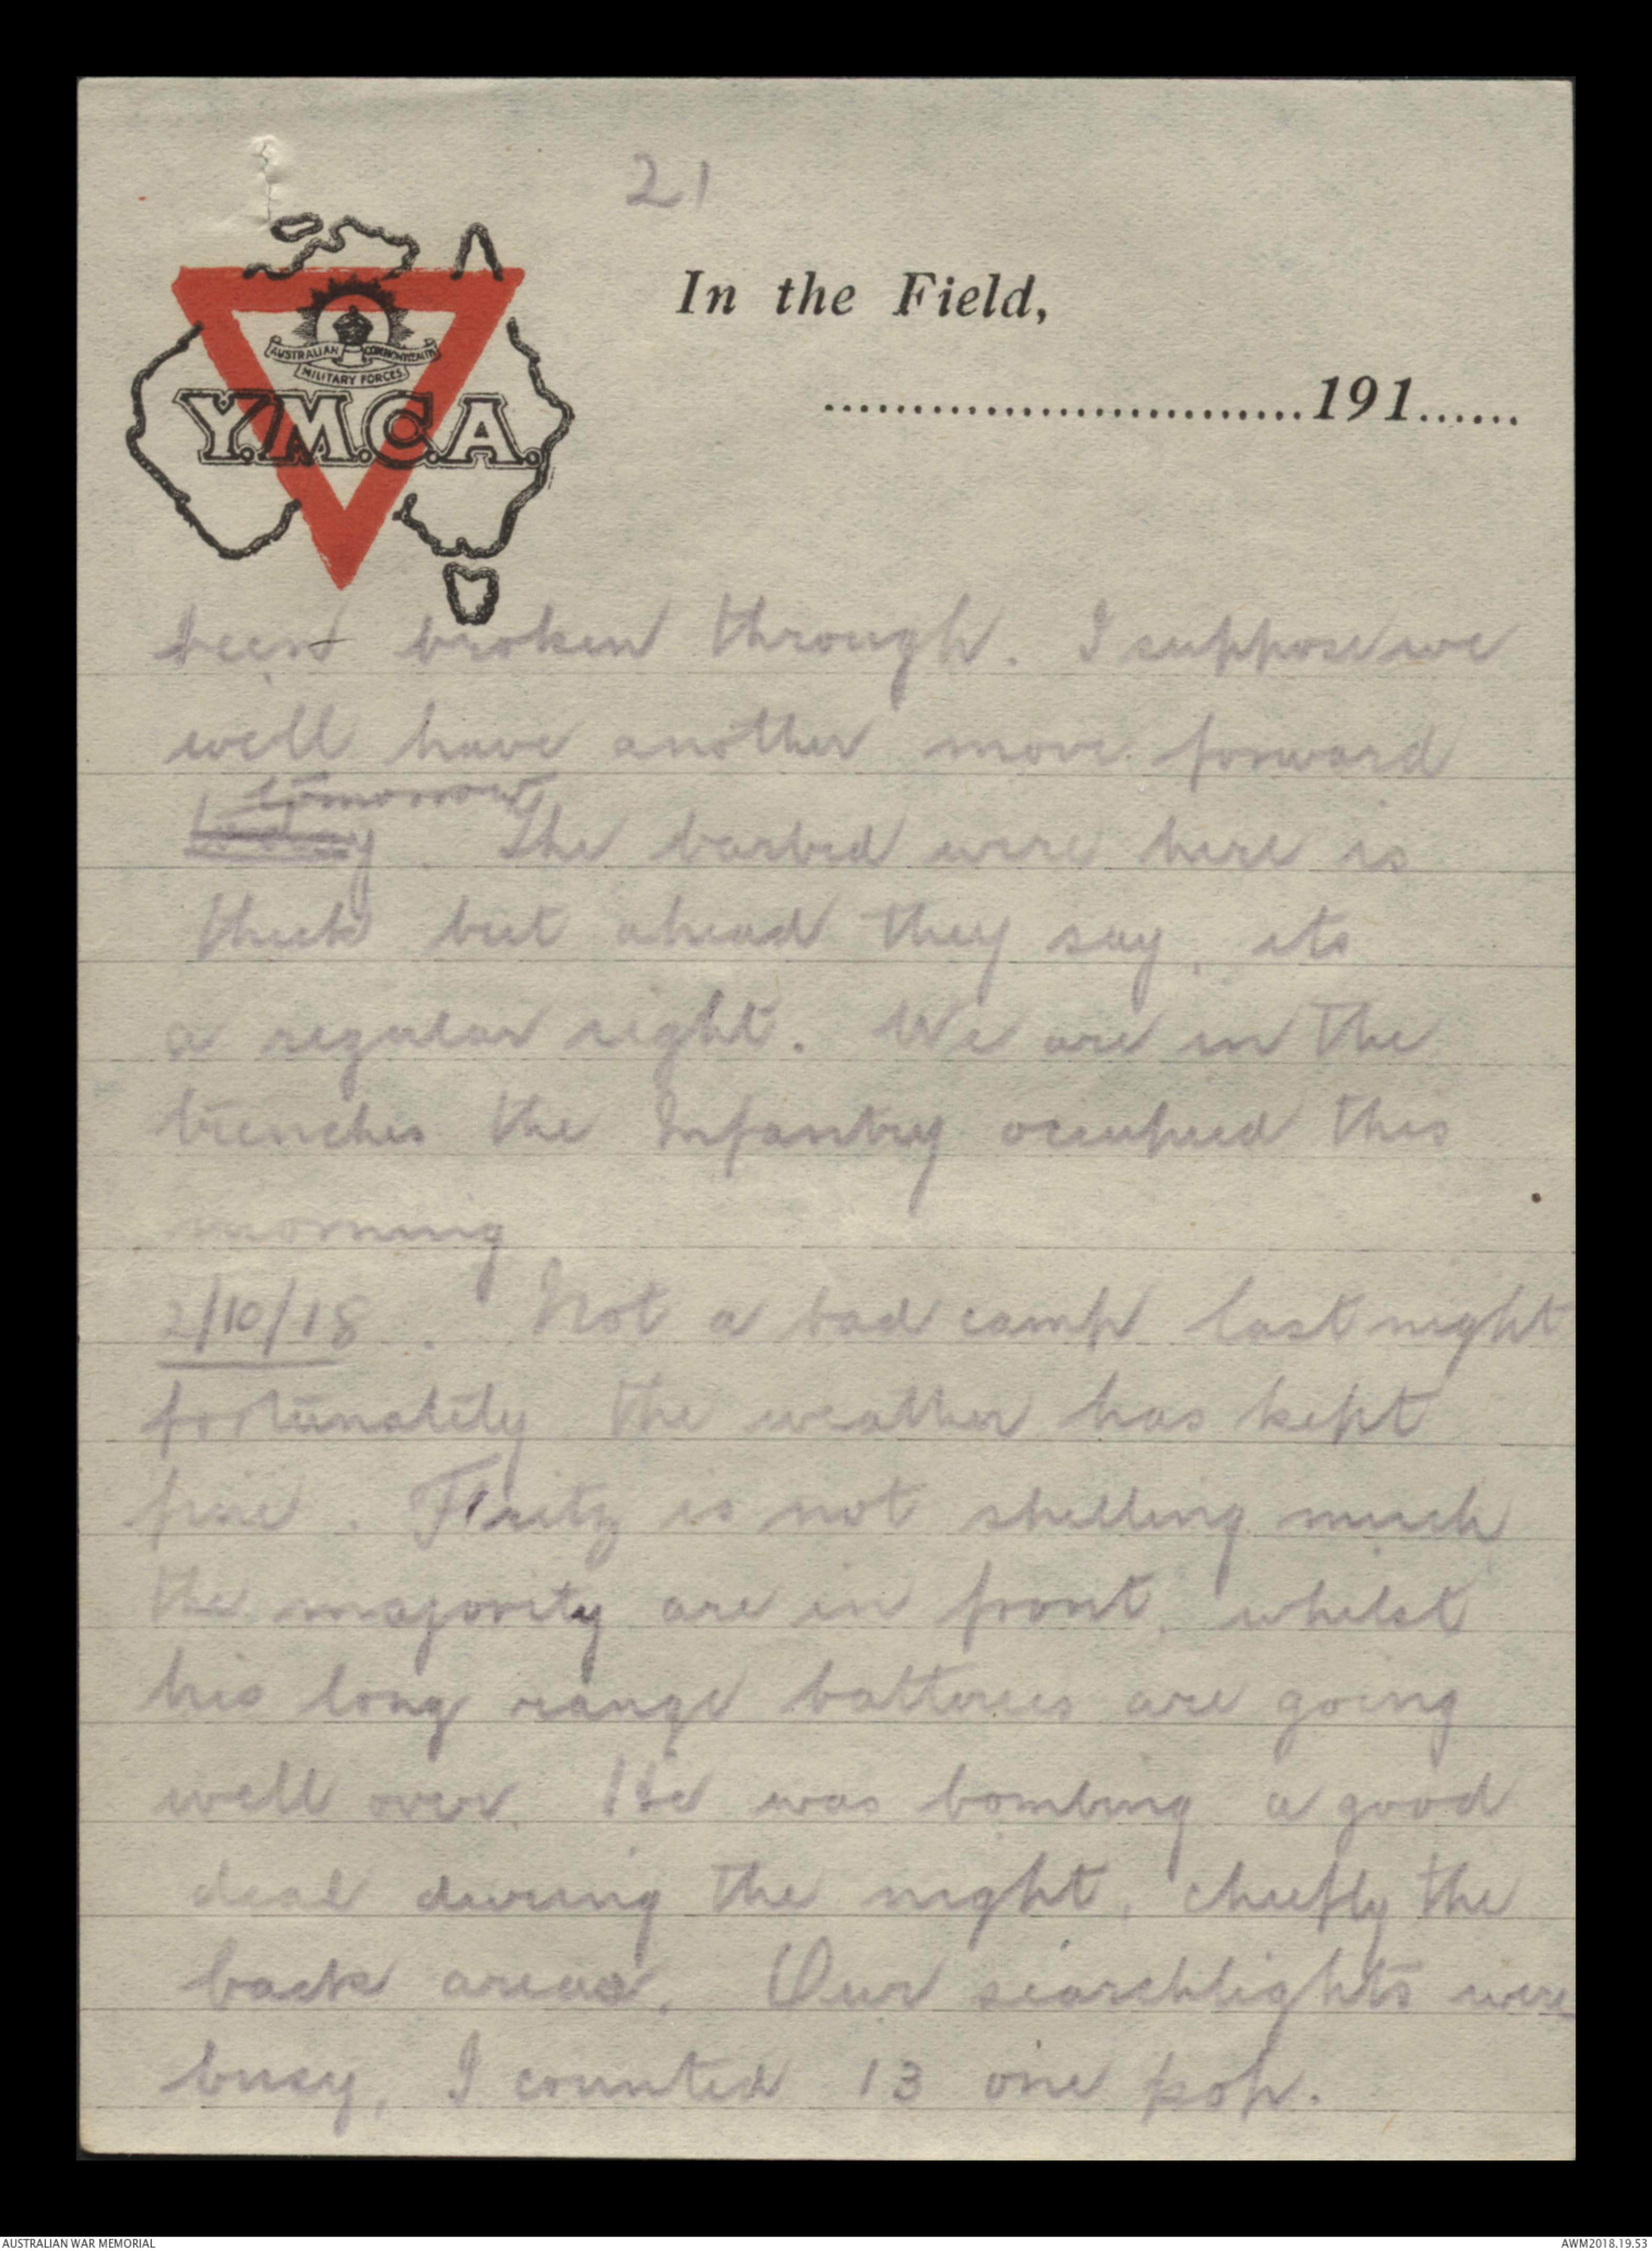 21
In the Field,
AUSTRALIAN COMMONWEALTH
MILITARY FORCES
Y.M.C.A.
..............................191......
been broken through. I suppose we
will have another move forward
tomorrow
today. The barbed wire here is
thick but ahead they say, its
a regular sight. We are in the
trenches the Infantry occupied this
morning
2/10/18. Not a bad camp last night
fortunately the weather has kept
fine. Fritz is not shelling much
the majority are in front, whilst
his long range batteries are going
well over. He was bombing a good
deal during the night, chiefly the
back areas. Our searchlights were
busy, I counted 13 one pop.
AUSTRALIAN WAR MEMORIAL
AWM2018.19.53